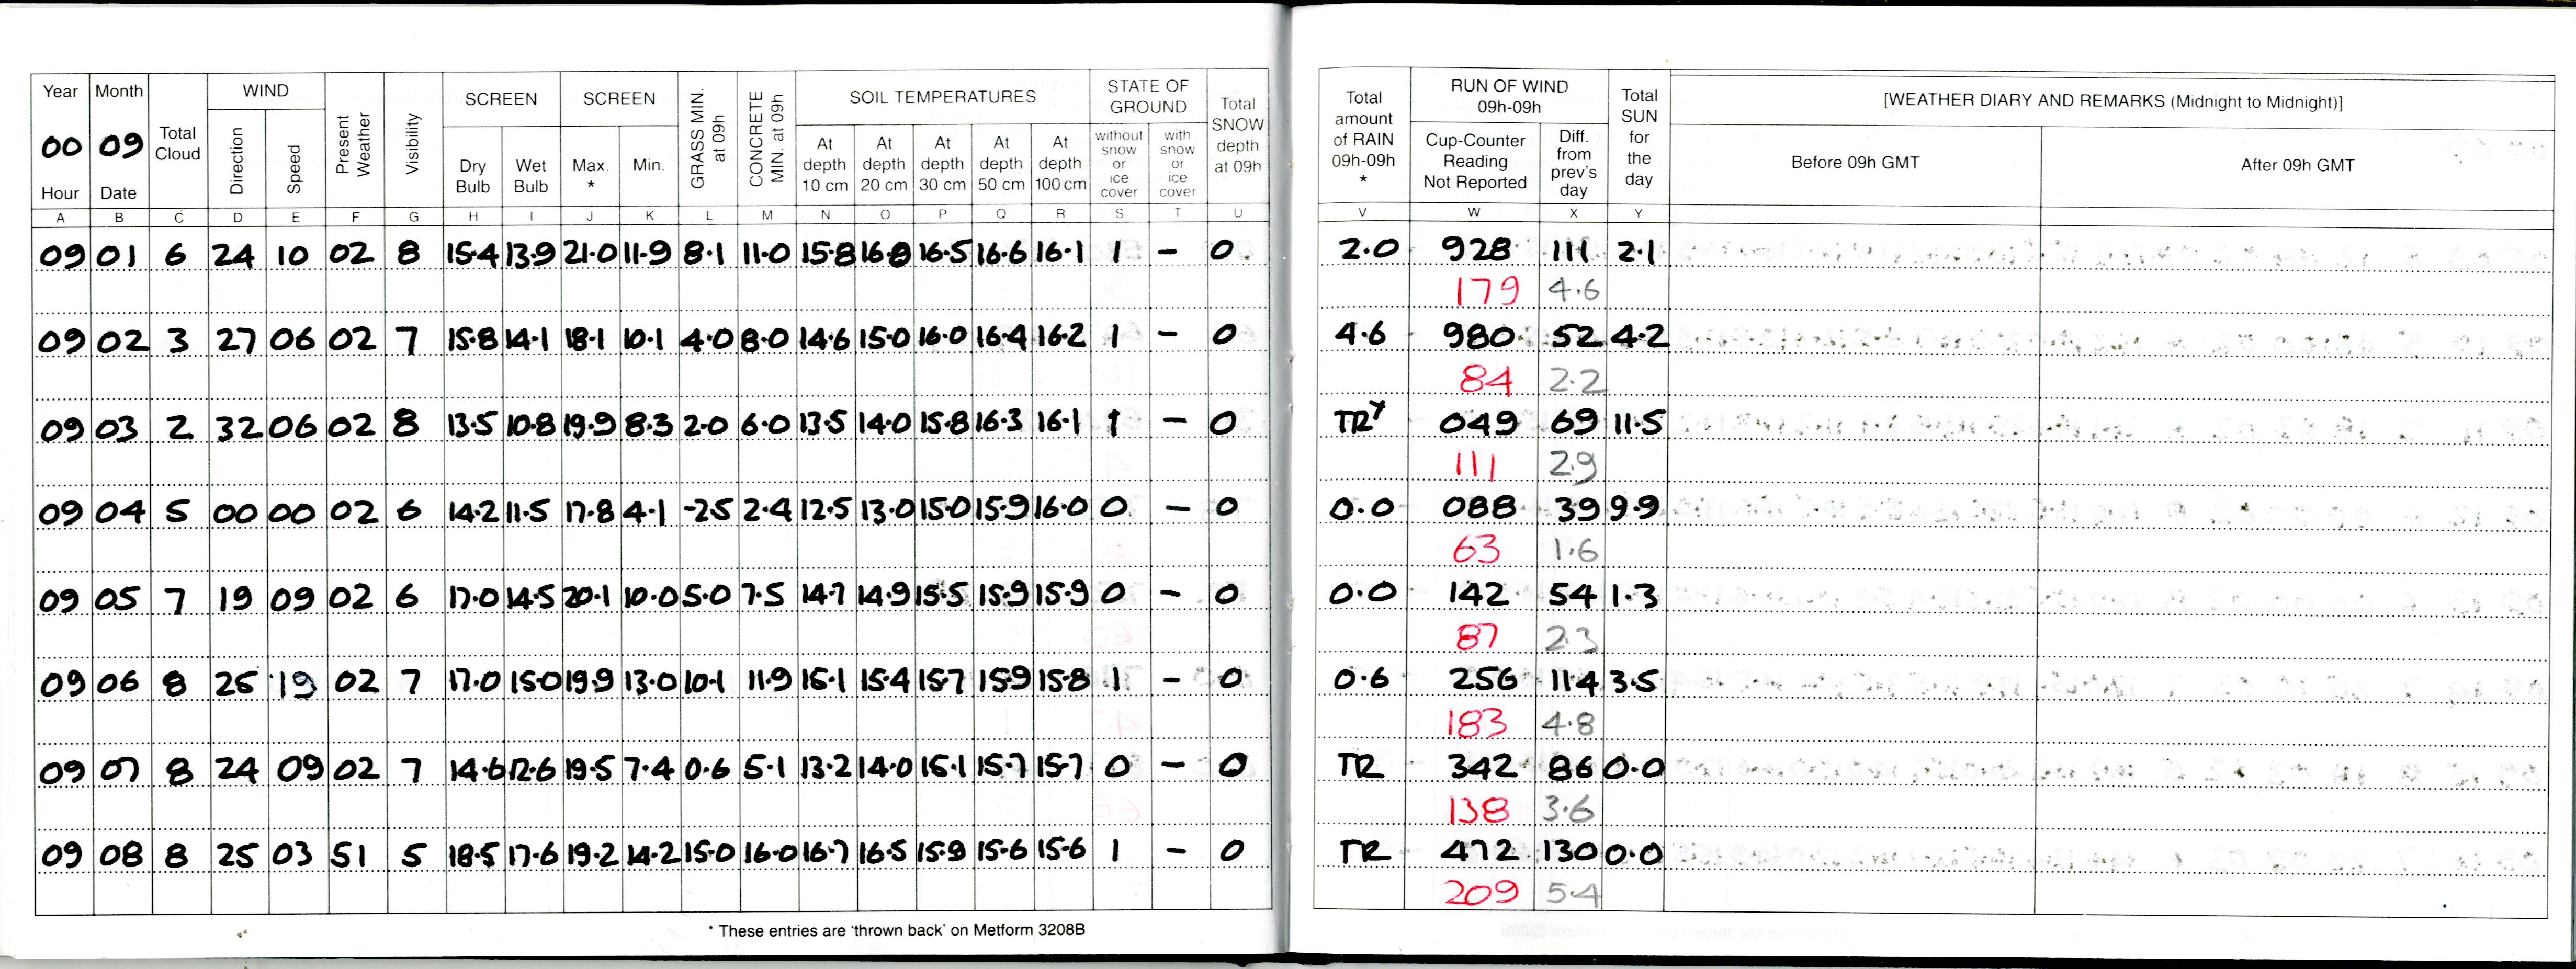 Year Month Total Cloud WIND Present Weather Visibility SCREEN SCREEN GRASS MIN. at 09h CONCRETE MIN. at 09h SOIL TEMPERATURES STATE OF GROUND Total SNOW depth at 09h
00 09 Direction Speed Dry Bulb Wet Bulb Max. * Min. At depth 10 cm At depth 20 cm At depth 30 cm At depth 50 cm At depth 100 cm without snow or ice cover with snow or ice cover
Hour Date
A B C D E F G H I J K L M N O P Q R S T U
09 01 6 24 10 02 8 15.4 13.9 21.0 11.9 8.1 11.0 15.8 16.8 16.5 16.6 16.1 1 - 0
09 02 3 27 06 02 7 15.8 14.1 18.1 10.1 4.0 8.0 14.6 15.0 16.0 16.4 16.2 1 - 0
09 03 2 32 06 02 8 13.5 10.8 19.9 8.3 2.0 6.0 13.5 14.0 15.8 16.3 16.1 1 - 0
09 04 5 00 00 02 6 14.2 11.5 17.8 4.1 -2.5 2.4 12.5 13.0 15.0 15.9 16.0 0 - 0
09 05 7 19 09 02 6 17.0 14.5 20.1 10.0 5.0 7.5 14.7 14.9 15.5 15.9 15.9 0 - 0
09 06 8 25 19 02 7 17.0 15.0 19.9 13.0 10.1 11.9 15.1 15.4 15.7 15.9 15.8 1 - 0
09 07 8 24 09 02 7 14.6 12.6 19.5 7.4 0.6 5.1 13.2 14.0 15.1 15.7 15.7 0 - 0
09 08 8 25 03 51 5 18.5 17.6 19.2 14.2 15.0 16.0 16.7 16.5 15.9 15.6 15.6 1 - 0
* These entries are 'thrown back' on Metform 3208B
Total amount of RAIN 09h-09h * RUN OF WIND 09h-09h Total SUN for the day [WEATHER DIARY AND REMARKS (Midnight to Midnight)]
Cup-Counter Reading Not Reported Diff. from prev's day Before 09h GMT After 09h GMT
V W X Y
2.0 928 111 2.1
179 4.6
4.6 980 52 4.2
84 2.2
TR 049 69 11.5
111 2.9
0.0 088 39 9.9
63 1.6
0.0 142 54 1.3
87 2.3
0.6 256 114 3.5
183 4.8
TR 342 86 0.0
138 3.6
TR 472 130 0.0
209 5.4